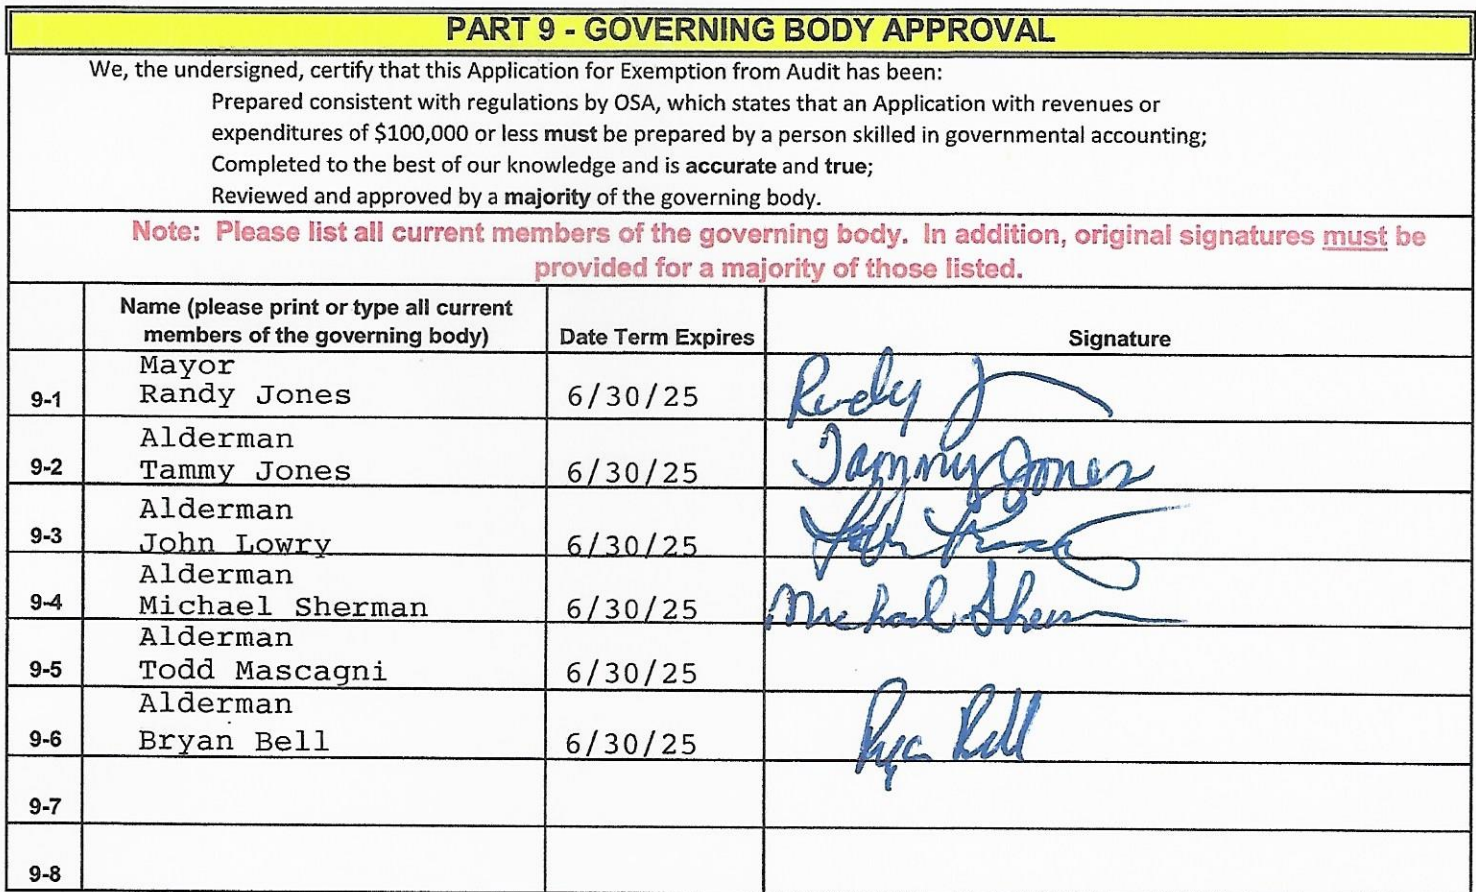 PART 9 - GOVERNING BODY APPROVAL
We, the undersigned, certify that this Application for Exemption from Audit has been:
Prepared consistent with regulations by OSA, which states that an Application with revenues or
expenditures of $100,000 or less must be prepared by a person skilled in governmental accounting;
Completed to the best of our knowledge and is accurate and true;
Reviewed and approved by a majority of the governing body.
Note: Please list all current members of the governing body. In addition, original signatures must be
provided for a majority of those listed.
Name (please print or type all current
members of the governing body)
Date Term Expires
Signature
9-1
Mayor
Randy Jones
6/30/25
Randy J
9-2
Alderman
Tammy Jones
6/30/25
Tammy Jones
9-3
Alderman
John Lowry
6/30/25
John
9-4
Alderman
Michael Sherman
6/30/25
Michael Sherman
9-5
Alderman
Todd Mascagni
6/30/25
9-6
Alderman
Bryan Bell
6/30/25
Bryan Bell
9-7
9-8